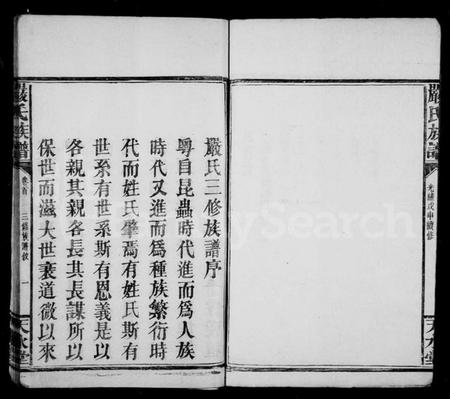 嚴氏族譜
光緒戊申續修
天水堂
嚴氏三修族譜序
粵自昆蟲時代進而爲人族
時代又進而爲種族繁衍時
代而姓氏肇焉有姓氏斯有
世系有世系斯有恩義是以
各親其親各長其長謀所以
保世而滋大世衰道微以來
嚴氏族譜
卷首
三修族譜敘
一
天水堂
FamilySearch